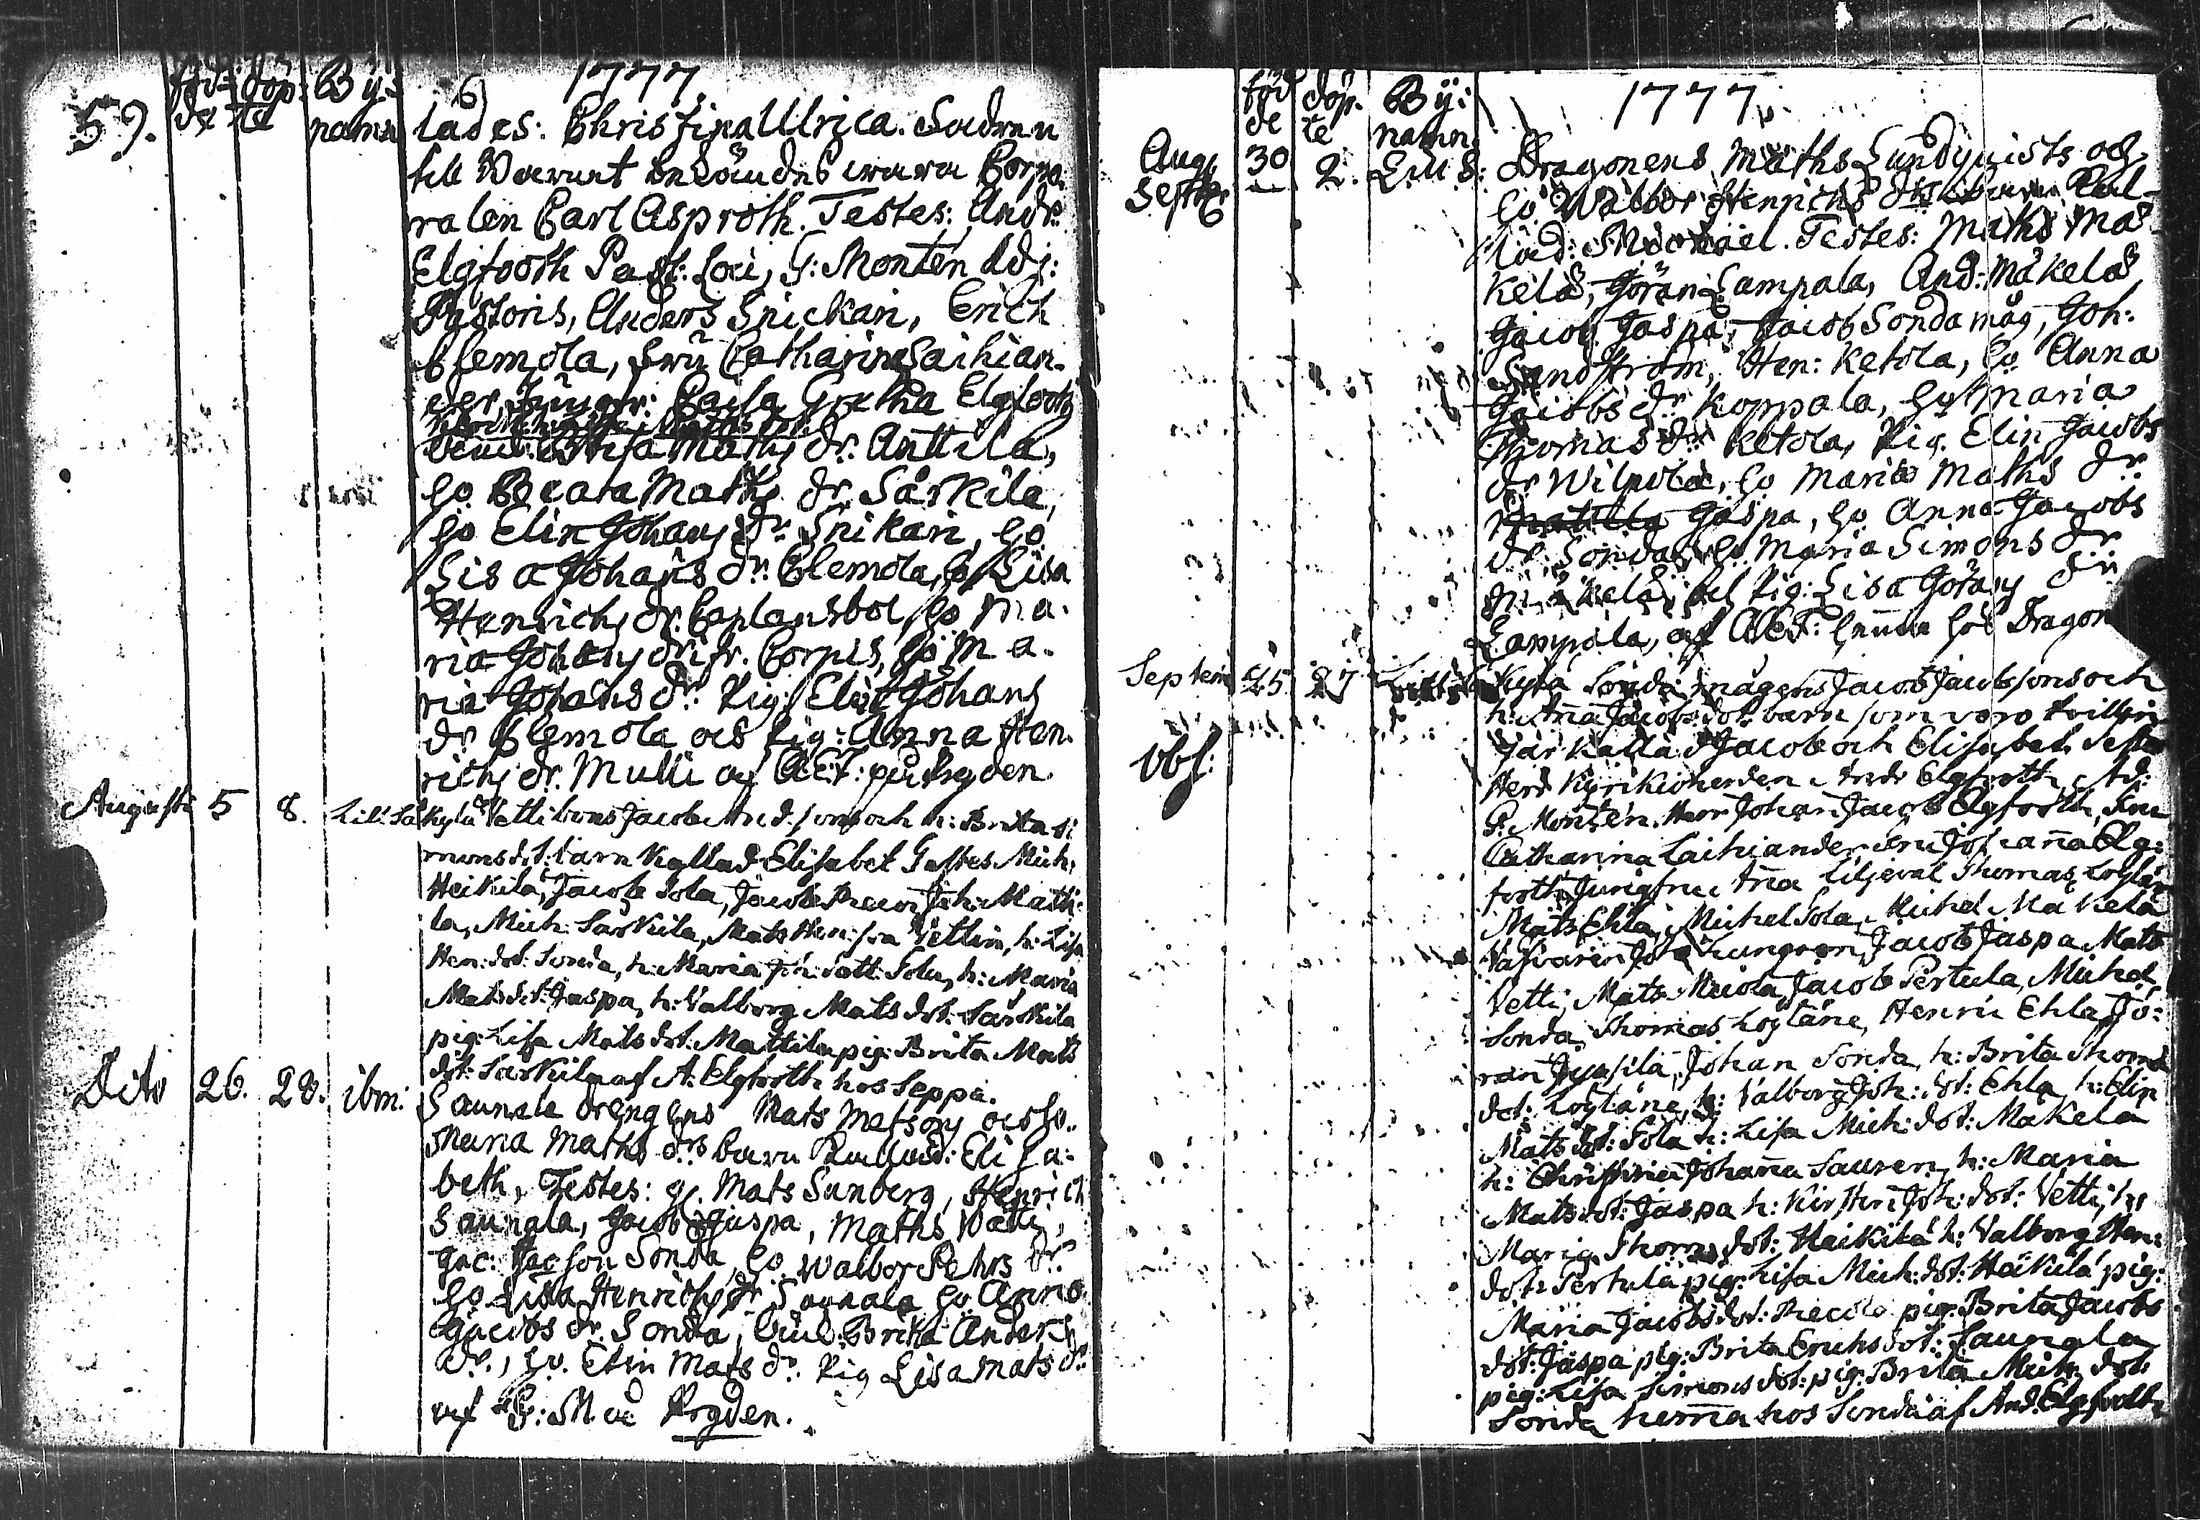 59. föd= de döp: te By: namn 6) 1777.
lades: Christina Ulrica. Fadren
till Barnet bekändes wara Corpo
ralen Carl Asproth. Testes: Andr:
Elgfooth Past: Loci, G: Montén Adj:
Pastoris, Anders Snickari, Erich
Clemola, Fru Catharina Laihian
der, Jungfr: Caisa Gretha Elgfooth
Lisa Maths dr. Anttila,
ho Beata Maths dr. Särkilä,
ho Elin Johans dr. Snikari, ho
Lisa Johans dr. Clemola, ho Lisa
Henrichs dr. Caplansbol, ho Ma
ria Johans dr: fr. Corpis, ho Ma
ria Johans dr: Pig: Elin Johans
dr Clemola och Pig: Anna Hen
richs dr. Mulli af A:E:F: på Prgden.
Augusti 5 8. Lill: Säkylä Vetti bons Jacob And:sons och h: Brita Si
mons dot: barn kallad Elisabet Testes Mich:
Heikilä, Jacob Sola, Jacob Joh: Matti
la, Mich: Särkilä, Mats Hen:son Vettin, h: Lisa
Hen: dot: Sonda, h: Maria Joh: dott: Sola, h: Maria
Mats dot: Jaspa, h: Valborg Mats dot: Särkilä
pig: Lisa Mats dot: Mattila pig: Brita Mats
dot: Särkilä af A: Elgfooth hos Seppä.
Dito 26. 28. ibm: Saunala drengens Mats Matsons och ho
Maria Maths drs barn Kallad: Elisa
beth, Testes: g. Mats Sunberg, Henrich
Saunala, Jacob Jaspa, Maths Wätti,
Jac: Jacson Sonda, ho Walbor Pehrs dr.
ho Lisa Henrichs dr. Saunala, ho Anna
Jacobs dr. Sonda, Brita Anders
dr., ho. Elin Mats dr. Pig Lisa Mats dr.
af G: M. å Prgden.
föd de döp. te By: namn 1777.
Aug: Septbr 30 2. Lill S: Dragonens Maths Sundquists och
ho Walbor Henrichs drs barn Kal
lad: Michael. Testes: Maths Mä
kelä, Göran Lampala, And: Mäkelä
Jacob Jaspa, Jacob Sonda måg, Joh:
Sandström, Hen: Ketola, ho Anna
Jacobs dr. Koppala, ho Maria
Thomas dr Ketola, Pig. Elin Jacobs
dr Wilpola, ho Maria Maths dr.
Jaspa, ho Anna Jacobs
dr. Sonda, ho Maria Simons dr
Mäkelä, Pig: Lisa Görans dr
Lampala, af A:E:F: hemma hos Dragon
Septem 25 27 Kylä Sonda mågens Jacob Jacobsons och
h: Anna Jacobs dot: barn som voro tvillin
Obs: gar kallad Jacob och Elisabet. Testes
Herr Kyrkioherden Andr Elgfooth, Ad:
G. Montén. Herr Johan Jacob Elgfooth, Fru
Catharina Laihiander Fru Johanna Elg:
footh Jungfru Anna Liljeval Thomas Löytäne
Mats Ehla, Michel Sola, Michel Mäkelä
Jacob Jaspa Mats
Vetti, Mats Jacob Pertula, Michel
Sonda, Thomas Löytäne, Henric Ehla, Jö:
ran Jussila, Johan Sonda, h: Brita Thom:
dot: Löytäne, h: Valborg Joh: dot: Ehla, h: Elin
Mats dot: Sola h: Lisa Mich: dot: Mäkelä
h: Christina Johanna Sauren, h: Maria
Mats dot: Jaspa h: Kirstin Joh: dot: Vetti, h:
Maria Thoms dot: Heikilä h: Valborg Hen:
dot: Pertula pig: Lisa Mich: dot: Heikilä pig:
Maria Jacobs dot: pig: Brita Jacobs
dot: Jaspa pig: Brita Erichs dot: Saunala
pig: Lisa Simons dot: pig: Brita Mich: dot:
Sonda hemma hos Sonda af And: Elgfooth